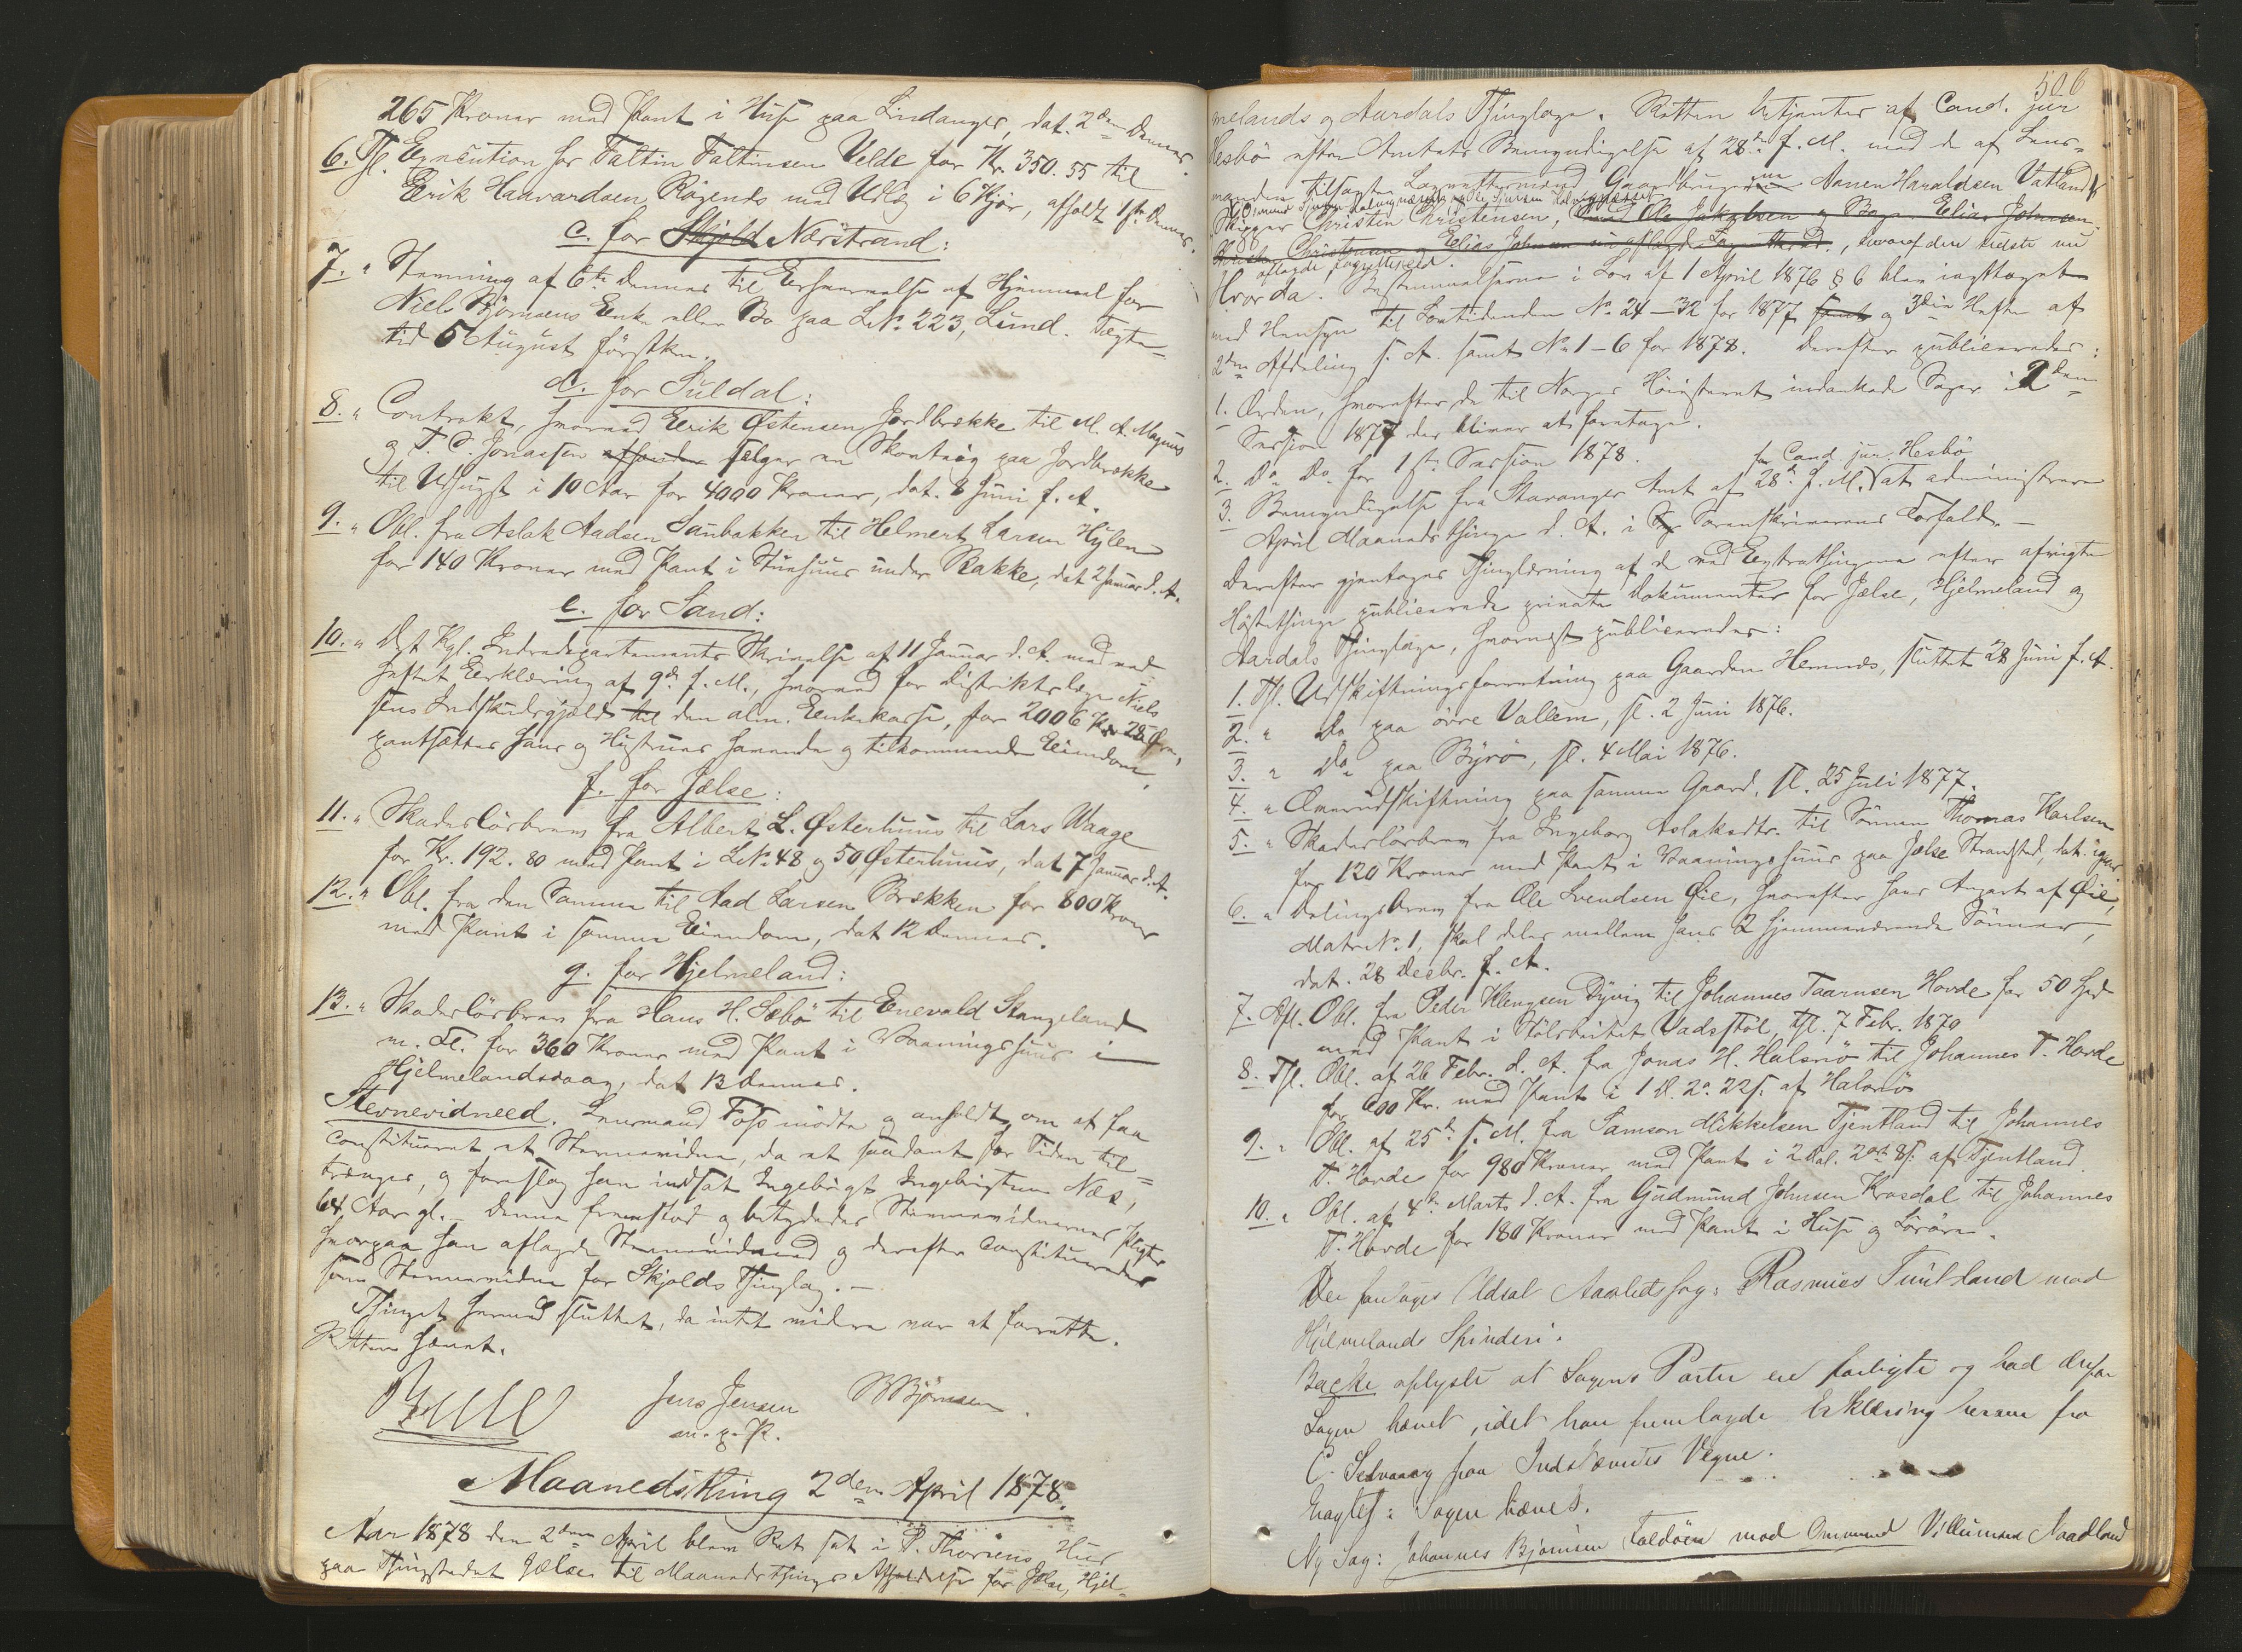 265 Kroner med Pant i Huse paa Lindanger, dat. 2den dennes.
6. Thl. Execution for Faltin Faltinsen Velde for Kr. 350.55 til
Erik Haavardsen Røgends med Udlæg i 6 Kjør, afholdt 1ste dennes.
c. for Skjold Nærstrand:
7. " Stevning af 6te dennes til Erhvervelse af Hjemmel for
Niels Björnsens Enke eller Bo paa L.No. 223, Lund. Tægte-
tid 5 August förstkm.
d. for Suldal:
8. " Contrakt, hvorved Erik Østensen Jordbrække til M. A. Magnus
og T. C. Jonassen afhænder sælger en Skovteig paa Jordbrække
til Uhugst i 10 Aar for 4000 Kroner, dat. 8 Juni f. A.
9. " Obl. fra Aslak Aadsen Saubakken til Helmert Larsen Hylen
for 140 Kroner med Pant i Stuehuus under Rakke, dat 2 Januar d. A.
e. for Sand:
10. " Det Kgl. Indredepartements Skrivelse af 11 Januar d. A. med ved-
heftet Erklæring af 9de f. M., hvorved for Distriktslæge Niels
sens Indskudsgjæld til den alm. Enkekasse, for 2006 Kr. 28 Øre,
pantsættes hans og Hustrues havende og tilkommende Eiendom.
f. for Jælse:
11. " Skadeslösbrev fra Albert L. Østerhuus til Lars Waage
for Kr. 192.80 med Pant i L.No. 48 og 50 Østerhuus, dat 7 Januar d. A.
12. " Obl. fra den Samme til Aad Larsen Brækken for 800 Kroner
med Pant i samme Eiendom, dat 12 dennes.
g. for Hjelmeland:
13. " Skadeslösbrev fra Hans H. Sæbö til Enevald Stangeland
m. Fl. for 360 Kroner med Pant i Vaaningshuus i
Hjelmelandsvaag, dat 13 dennes.
Stevnevidneed. Lensmand Foss mödte og anholdt om at faa
constitueret et Stevnevidne, da et saadant for Tiden til-
trænges, og foreslog han indsat Ingebrigt Ingebrigtsen Næs,
64 Aar gl. – Denne fremstod og betydedes Stevnevidnernes Pligter
hvorpaa han aflagde Stevnevidneed og derefter constitueredes
som Stevnevidne for Skjolds Thinglag. –
Thinget hermed sluttet, da intet videre var at forrette.
Retten hævet.
Jens Jensen BBjörnsen
m. p. P.
Maanedsthing 2den April 1878.
Aar 1878 den 2den April blev Ret sat i P. Thorsens Hus
paa Thingstedet Jælse til Maanedsthings Afholdelse for Jælse, Hjel-
506
melands og Aardals Thinglage. Retten betjentes af Cand. jur
Hesbö efter Amtets Bemyndigelse af 28de f. M. med de af Lens-
manden tilsagte Lagrettesmænd Gaardbrugerne Nanen Haraldsen Vatland
Skipper Christen Christensen, Ole Jakobsen og Elias Johnsen
Christen Christensen og Elias Johnsen, hvoraf den sidste nu
aflagde Lagretteseed.
Hvorda. Bestemmelserne i Lov af 1 April 1876 § 6 blev iagttaget
med Hensyn til Lovtidenden No. 24–32 for 1877 samt og 3die Hefte af
2den Afdeling s. A. samt No. 1–6 for 1878. Derefter publiceredes:
1. Orden, hvorefter de til Norges Höiesteret indankede Sager i 2den
Session 1877 der bliver at foretage.
2. Do. Do. for 1ste Session 1878.
for Cand. jur. Hesbö
3. Bemyndigelse fra Stavanger Amt af 28de f. M. at administrere
April Maanedsthinge d. A. i Sorenskriverens Forfald. –
Derefter gjentages Thinglæsning af de ved Extrathingene efter afvigte
Høstethinge publicerede private Dokumenter for Jælse, Hjelmeland og
Aardals Thinglage, hvornæst publiceredes:
1. Thl. Udskiftningsforretning paa Gaarden Hemnes, sluttet 28 Juni f. A.
2. " Do. paa övre Vallem, sl. 2 Juni 1876.
3. " Do. paa Byrö, sl. 4 Mai 1876.
4. " Overudskiftning paa samme Gaard, sl. 25 Juli 1877.
5. " Skadeslösbrev fra Ingeborg Aslaksdtr. til Sönnen Thomas Karlsen
for 120 Kroner med Pant i Vaaningshuus paa Jælse Strandsted, dat. igaar
6. " Delingsbrev fra Ole Svendsen Øie, hvorefter hans Anpart af Øie,
Matr. No. 1, skal deles mellem hans 2 hjemmeværende Sönner,
dat. 28 Decbr. f. A.
7. Afl. Obl. fra Peder Klengsen Dyvig til Johannes Taarnsen Hovde for 50 Spd
med Pant i Stölsbeitet Vadsstöl, thl. 7 Febr. 1870
8. Thl. Obl. af 26 Febr. d. A. fra Jonas H. Halsnö til Johannes T. Hovde
for 600 Kr. med Pant i 1 D. 2 o. 22 s. af Halsnö
9. " Obl. af 25de f. M. fra Samson Mikkelsen Tjentland til Johannes
T. Hovde for 980 Kroner med Pant i 2 Dal. 2 ort 8 s. af Tjentland.
10. " Obl. af 4de Marts d. A. fra Gudmund Johnsen Krosdal til Johannes
T. Hovde for 180 Kroner med Pant i Huse og Lösöre.
Der foretoges Udsat Aastedssag: Rasmus Tuntland mod
Hjelmelands Spinderi.
Backe oplyste at Sagens Parter ere forligte og bad derfor
Sagen hævet, idet han fremlagde Erklæring herom fra
C. Selvaaag paa Indstævntes Vegne.
Eragtet: Sagen hæves.
Ny Sag: Johannes Bjørnsen Foldöen mod Ommund Villumsen Naadland